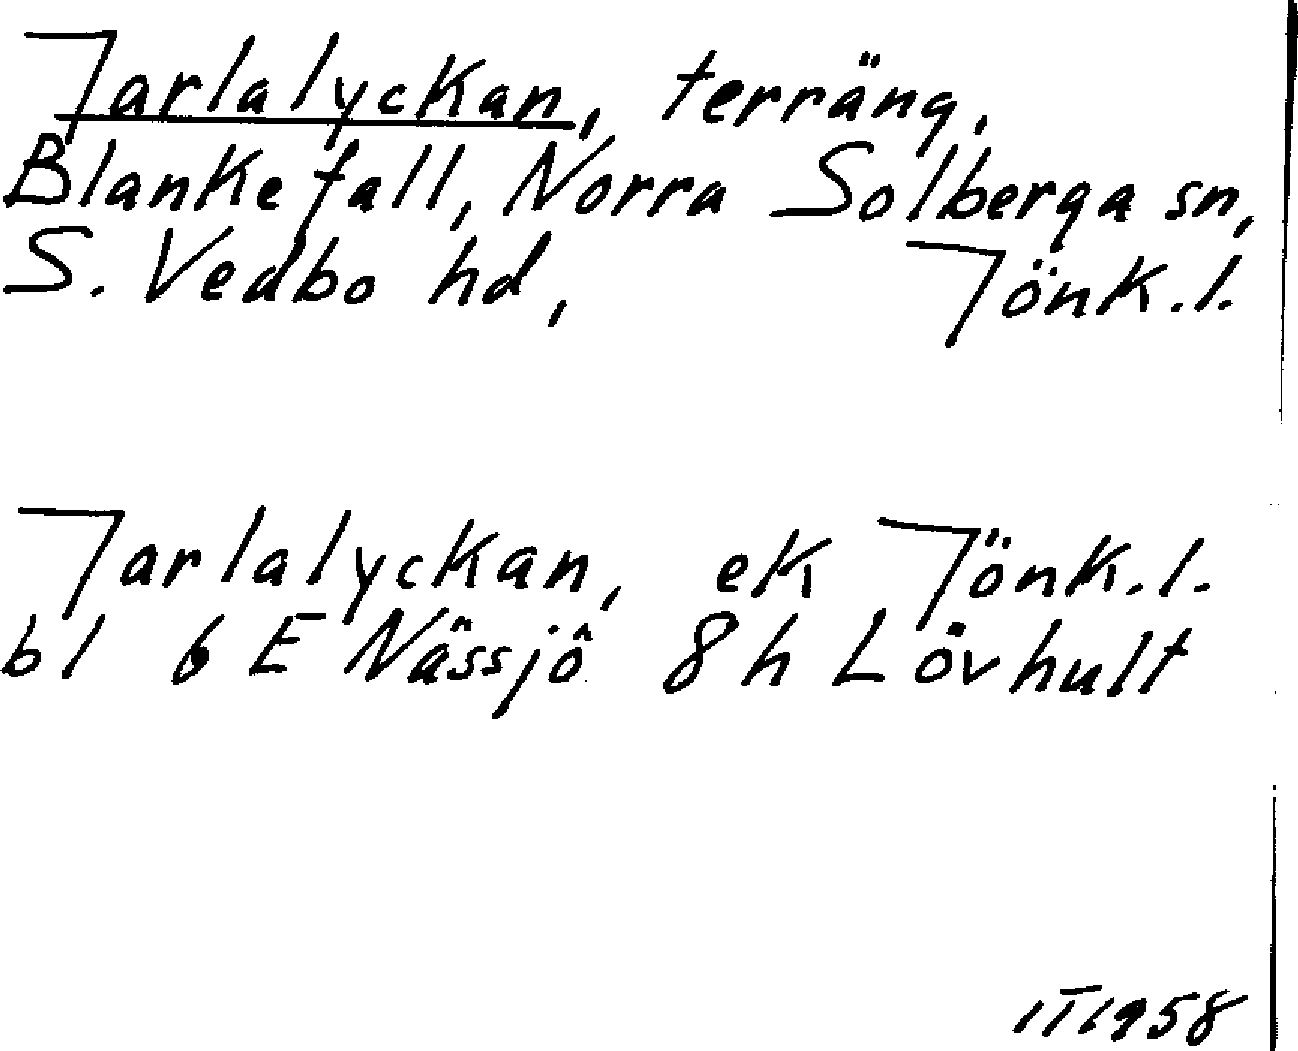 Jarlalyckan, terräng,
Blankefall, Norra Solberga sn,
S. Vedbo hd, Jönk.l.
Jarlalyckan, ek Jönk.l.
bl 6 E Nässjö 8 h Lövhult
1958